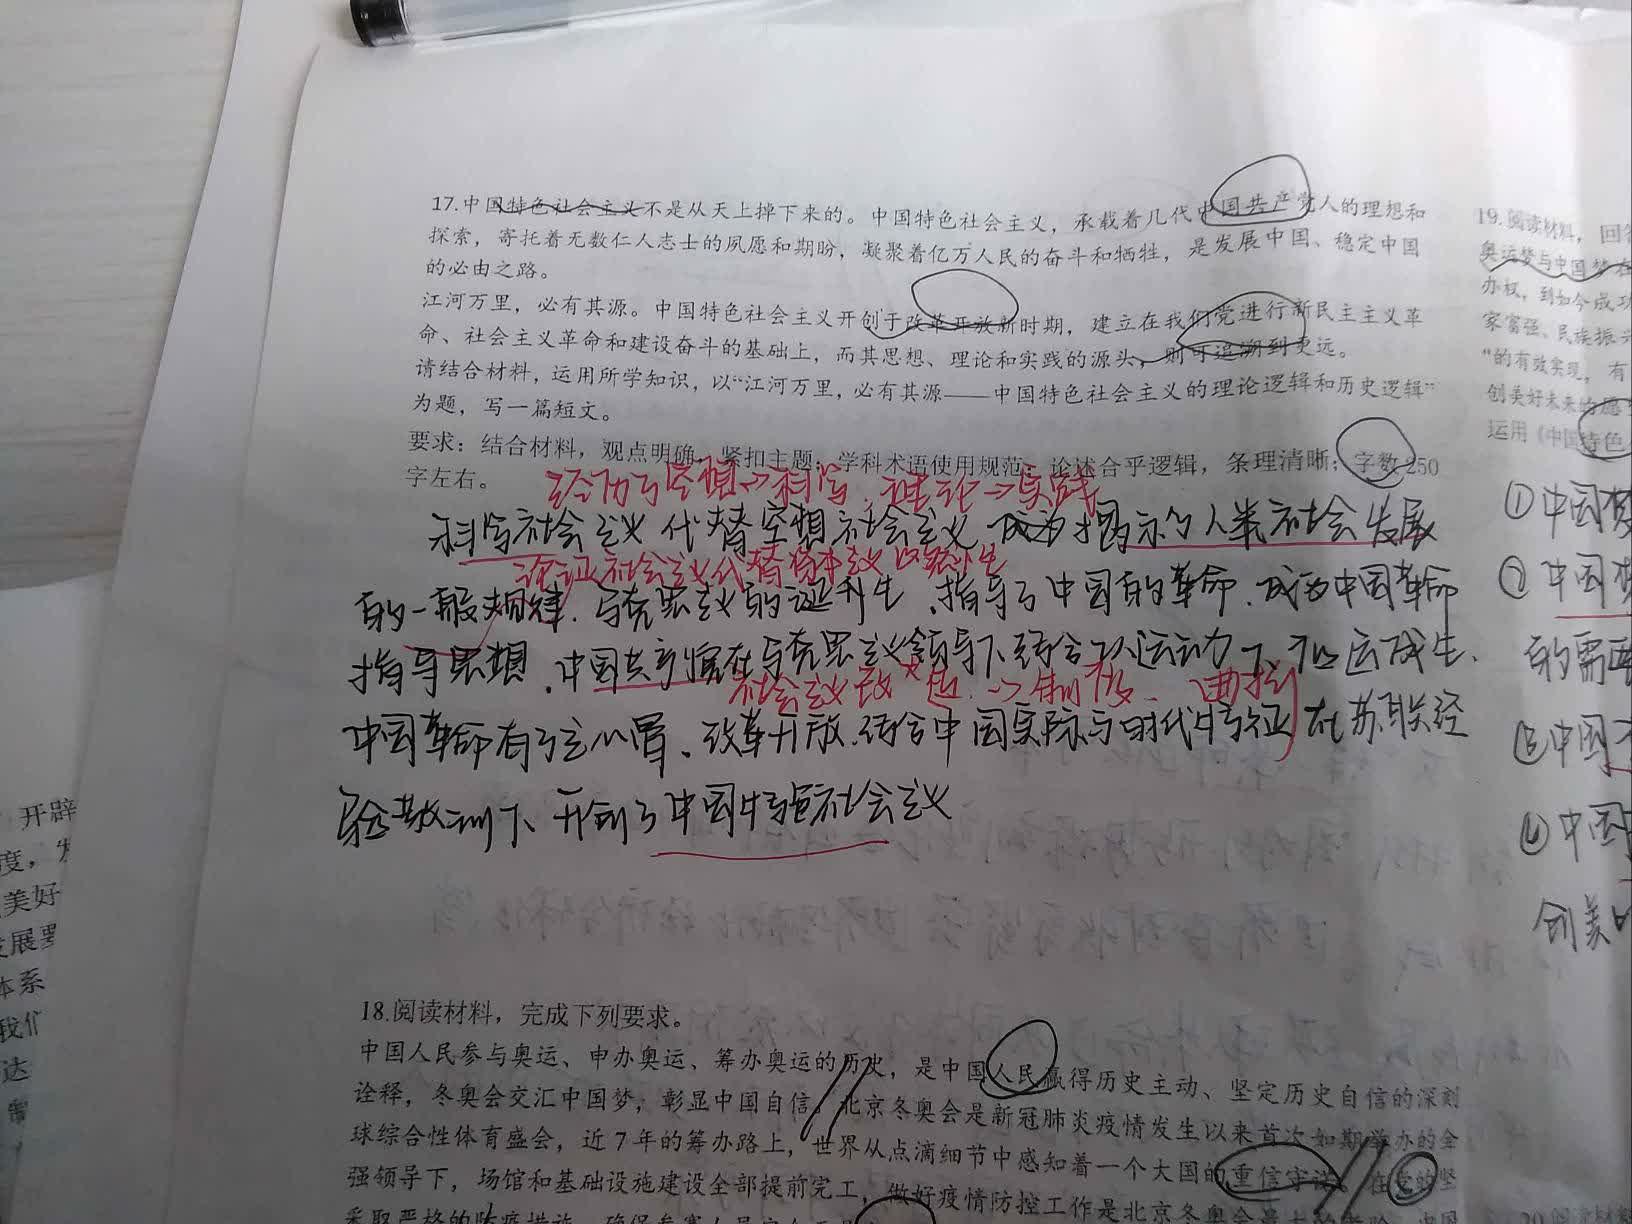 17.中国特色社会主义不是从天上掉下来的。中国特色社会主义，承载着几代中国共产党人的理想和
探索，寄托着无数仁人志士的夙愿和期盼，凝聚着亿万人民的奋斗和牺牲，是发展中国、稳定中国
的必由之路。
江河万里，必有其源。中国特色社会主义开创于改革开放新时期，建立在我们党进行新民主主义革
命、社会主义革命和建设奋斗的基础上，而其思想、理论和实践的源头，则可追溯到更远。
请结合材料，运用所学知识，以“江河万里，必有其源——中国特色社会主义的理论逻辑和历史逻辑”
为题，写一篇短文。
要求：结合材料，观点明确，紧扣主题；学科术语使用规范；论述合乎逻辑，条理清晰；字数250
字左右。
经历了空想→科学，理论→实践
科学社会主义代替空想社会主义，成为揭示了人类社会发展
论证社会主义代替资本主义必然性
的一般规律.马克思主义的诞生，指导了中国的革命.成为中国革命
指导思想.中国共产党在马克思主义领导下结合工人运动下应运而生、
中国革命有了主心骨、改革开放.结合中国实际与时代特征在苏联经
验教训下、开创了中国特色社会主义
18.阅读材料，完成下列要求。
中国人民参与奥运、申办奥运、筹办奥运的历史，是中国人民赢得历史主动、坚定历史自信的深刻
诠释，冬奥会交汇中国梦，彰显中国自信。北京冬奥会是新冠肺炎疫情发生以来首次如期举办的全
球综合性体育盛会，近7年的筹办路上，世界从点滴细节中感知着一个大国的重信守诺。在党的坚
强领导下，场馆和基础设施建设全部提前完工，做好疫情防控工作是北京冬奥会
19.阅读材料，回
奥运梦与中国梦
办权，到如今成功
家富强、民族振兴
”的有效实现，有
创美好未来的愿
运用《中国特色
①中国
②中国
的需要
③中国
④中国
创美
开辟
度，
美好
发展要
体系
我们
达